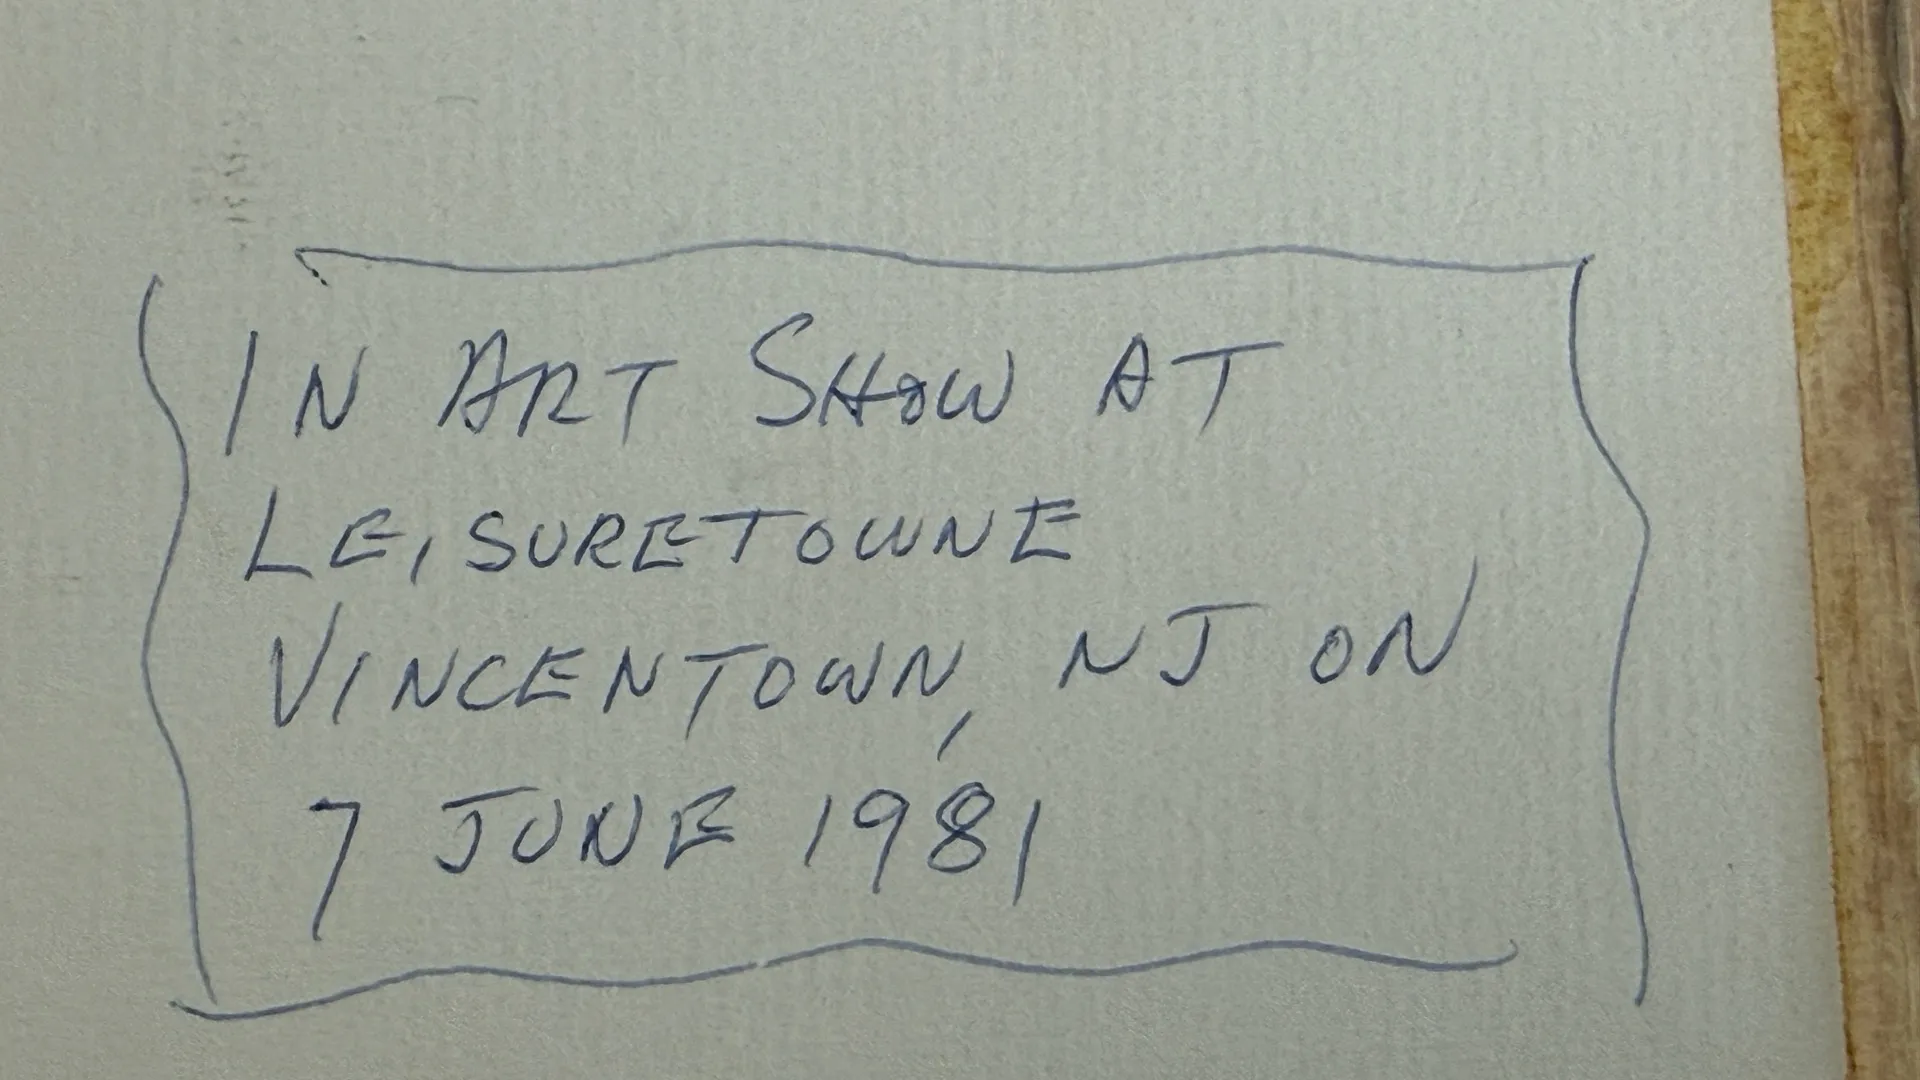 IN ART SHOW AT
LEISURETOWNE
VINCENTOWN, NJ ON
7 JUNE 1981